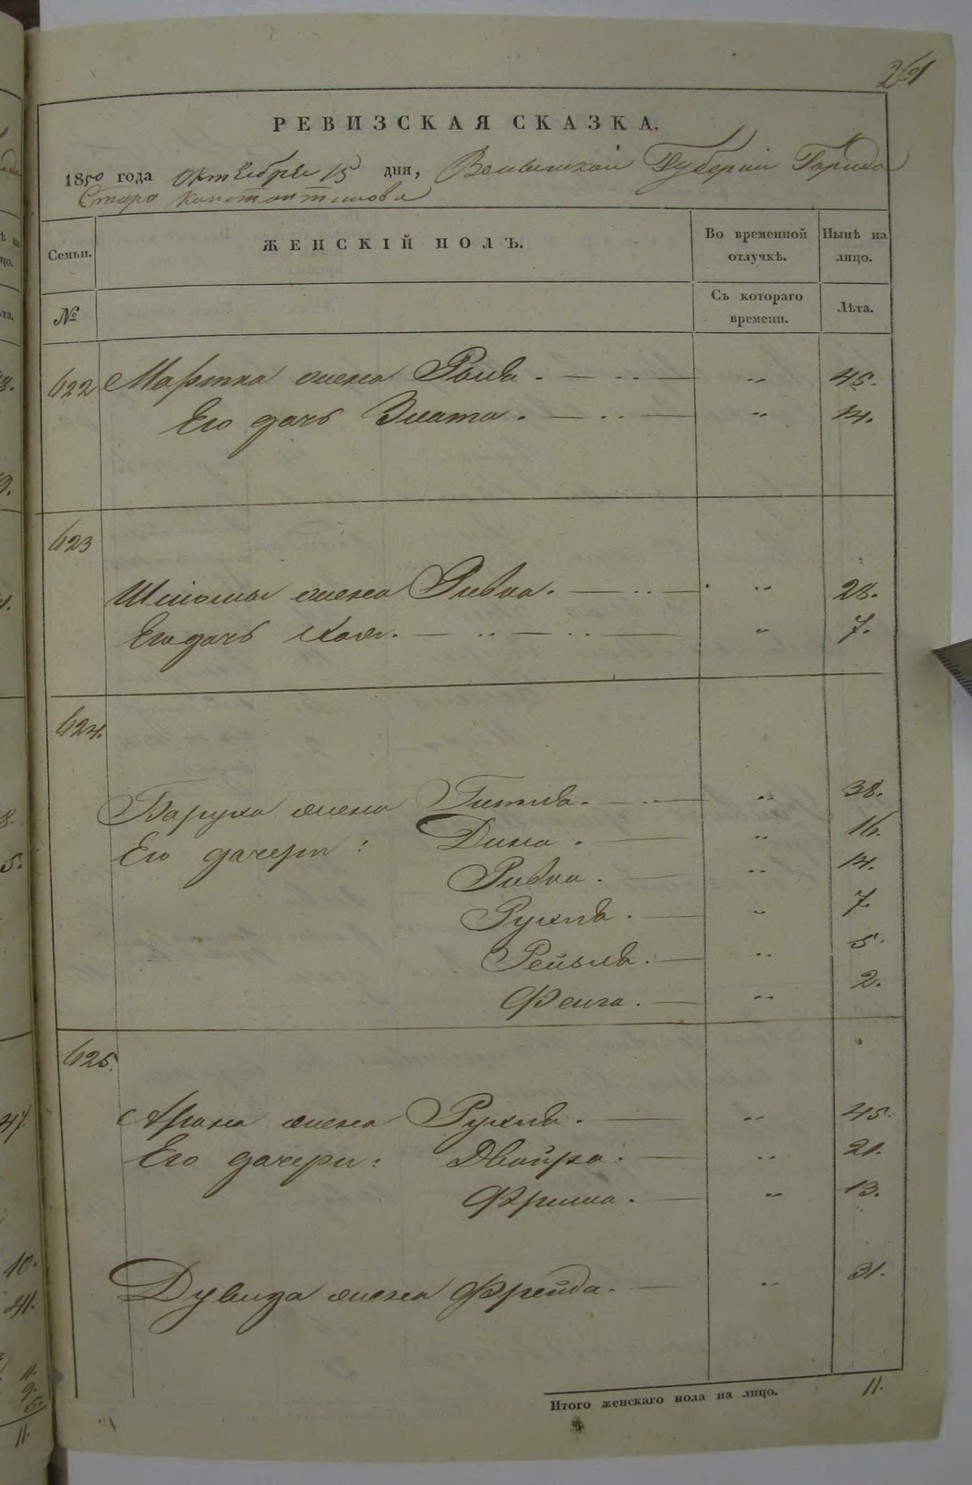 261
РЕВИЗСКАЯ СКАЗКА.
1850 года Октебрѣ 15 дня, Волынской Губерніи Города
Старо Константинова
Семьи. ЖЕНСКІЙ ПОЛЪ. Во временной отлучкѣ. Нынѣ на лицо.
№ Съ котораго времени. Лѣта.
622 жена " 45.
Его дочь Злата. " 14.
623
Шліомы жена Ривка. " 28.
Его дочь Хая. " 7.
624.
Баруха жена Гитля. " 38.
Его дочери: Дина. " 16.
Ривка. " 14.
Рухля. " 7.
Рейзля. " 5.
Фейга. " 2.
625.
Арона жена Рухля. " 45.
Его дочери: Двойра. " 21.
" 13.
Дувида жена Фрейда. " 31.
Итого женскаго пола на лицо. 11.